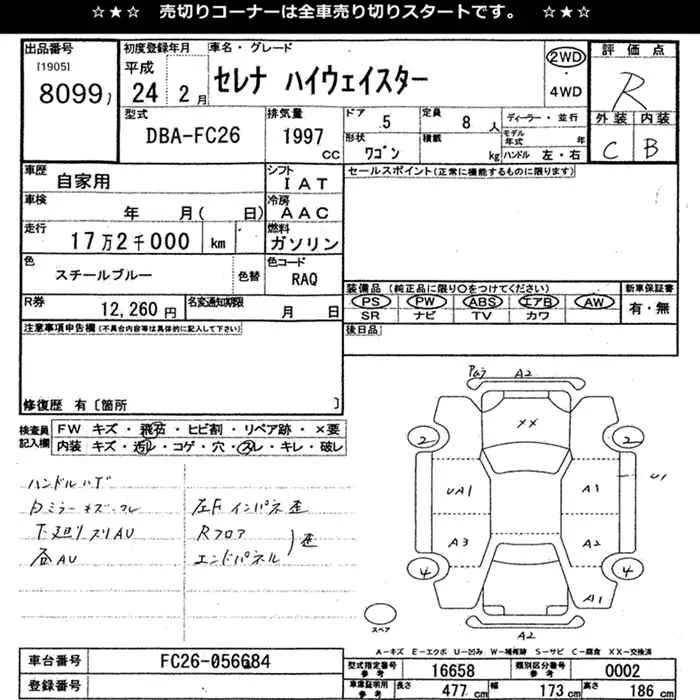 ☆★☆ 売切りコーナーは全車売り切りスタートです。 ☆★☆
出品番号 初度登録年月 車名・グレード 評価点
[1905] 平成 セレナ ハイウェイスター 2WD R
8099 24 2月 4WD
型式 排気量 ドア 5 定員 8人 ディーラー・並行 外装 内装
DBA-FC26 1997cc 形状 ワゴン 積載 kg モデル年式 年 ハンドル 左・右 C B
車歴 自家用 シフト IAT セールスポイント(正常に機能するものに限ります)
車検 年 月( 日) 冷房 AAC
走行 17万2千000 km 燃料 ガソリン
色 スチールブルー 色替 色コード RAQ 装備品(純正品に限り〇をつけてください) 新車保証書
PS PW ABS エアB AW 有・無
R券 12,260円 名変通知期限 月 日 SR ナビ TV カワ
注意事項申告欄(不具合内容等は具体的に記入して下さい) 後日品
修復歴 有〔箇所 〕
検査員記入欄 FW キズ・飛石・ヒビ割・リペア跡・×要
内装 キズ・汚レ・コゲ・穴・スレ・キレ・破レ
ハンドルハゲ
キズ 左F インパネ歪
下廻りスリAU Rフロア
AU エンドパネル 歪
A2
XX
2 2
UA1 A1 U1
A3 A2
4 4
A1
A2
スペア
A−キズ E−エクボ U−凹み W−補修跡 S−サビ C−腐食 XX−交換済
車台番号 FC26-056684 型式指定番号 参考 16658 類別区分番号 参考 0002
登録番号 車庫証明用 参考 長さ 477cm 幅 173cm 高さ 186cm